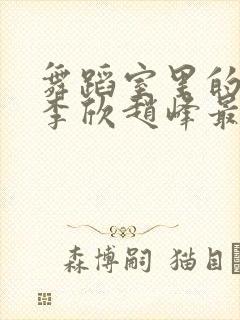 舞蹈室里的
李欣赵峰最
森博嗣 猫目